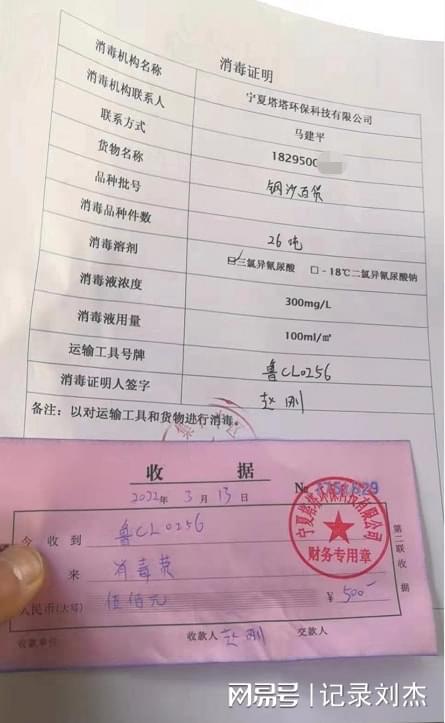 消毒证明
消毒机构名称 宁夏塔塔环保科技有限公司
消毒机构联系人 马建平
联系方式 1829500
货物名称 钢沙百货
品种批号
消毒品种件数 26吨
消毒溶剂 ☑三氯异氰尿酸 □-18℃二氯异氰尿酸钠
消毒液浓度 300mg/L
消毒液用量 100ml/㎡
运输工具号牌 鲁CL0256
消毒证明人签字 赵刚
备注：以对运输工具和货物进行消毒。
收 据
2022年 3月 13日 №
今收到 鲁CL0256
来 消毒费
人民币(大写) 伍佰元 ¥ 500
收款单位 收款人 赵刚 交款人
第二联收据
宁夏塔塔环保科技有限公司
财务专用章
网易号 | 记录刘杰